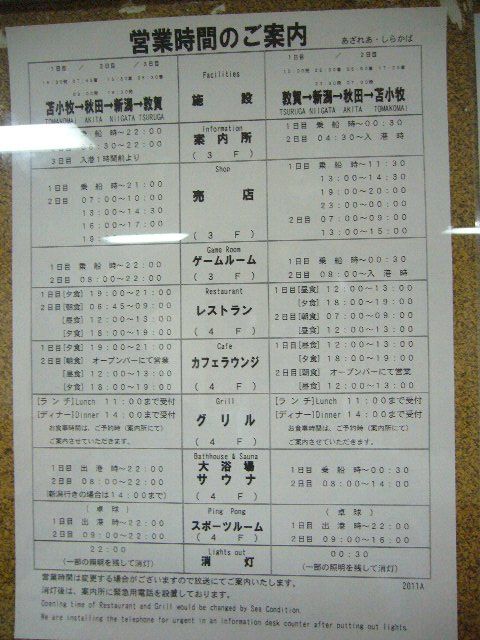 営業時間のご案内
あざれあ・しらかば
1日目 / 2日目 / 3日目
苫小牧→秋田→新潟→敦賀
TOMAKOMAI AKITA NIIGATA TSURUGA
Facilities
施設
1日目 2日目
敦賀→新潟→秋田→苫小牧
TSURUGA NIIGATA AKITA TOMAKOMAI
乗船時~22:00
3日目 入港1時間前より
Information
案内所
(3F)
1日目 乗船時~00:30
2日目 04:30~入港時
1日目 乗船時~21:00
2日目 07:00~10:00
13:00~14:30
16:00~17:00
Shop
売店
(3F)
1日目 乗船時~11:30
13:00~14:30
19:00~20:00
23:00~00:00
2日目 07:00~09:00
13:00~15:00
1日目 乗船時~22:00
2日目 08:00~22:00
Game Room
ゲームルーム
(3F)
1日目 乗船時~00:30
2日目 08:00~入港時
1日目[夕食] 19:00~21:00
2日目[朝食] 06:45~09:00
[昼食] 12:00~13:00
[夕食] 18:00~19:00
Restaurant
レストラン
(4F)
1日目[昼食] 12:00~13:00
[夕食] 18:00~19:00
2日目[朝食] 07:00~09:00
[昼食] 12:00~13:00
1日目[夕食] 19:00~21:00
2日目[朝食] オープンバーにて営業
[昼食] 12:00~13:00
[夕食] 18:00~19:00
Cafe
カフェラウンジ
(4F)
1日目[昼食] 12:00~13:00
[夕食] 18:00~19:00
2日目[朝食] オープンバーにて営業
[昼食] 12:00~13:00
[ランチ]Lunch 11:00まで受付
[ディナー]Dinner 14:00まで受付
お食事時間は、ご予約時(案内所にて)
ご案内させていただきます。
Grill
グリル
(4F)
[ランチ]Lunch 11:00まで受付
[ディナー]Dinner 14:00まで受付
お食事時間は、ご予約時(案内所にて)
ご案内させていただきます。
1日目 出港時~22:00
2日目 08:00~22:00
(新潟行きの場合は14:00まで)
Bathhouse & Sauna
大浴場
サウナ
(4F)
1日目 乗船時~00:30
2日目 08:00~14:00
(卓球)
1日目 出港時~22:00
2日目 09:00~22:00
Ping Pong
スポーツルーム
(4F)
(卓球)
1日目 出港時~22:00
2日目 09:00~14:00
22:00
(一部の照明を残して消灯)
Lights out
消灯
00:30
(一部の照明を残して消灯)
営業時間は変更する場合がございますので放送にてご案内いたします。
消灯後は、案内所に緊急用電話を設置しております。
2011A
Opening time of Restaurant and Grill would be changed by Sea Condition.
We are installing the telephone for urgent in an information desk counter after putting out lights.